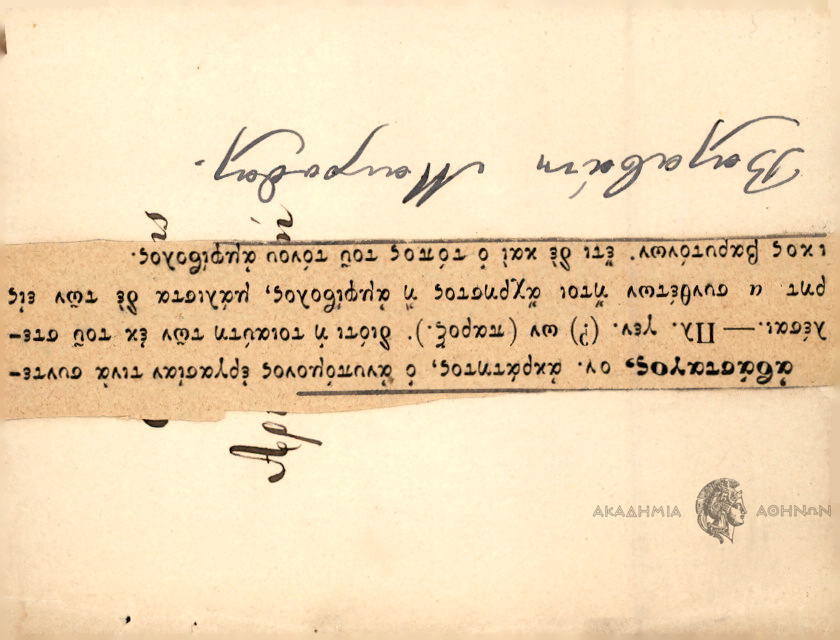 ἀβάσταγος, ον. ἀκράτητος, ὁ ἀνυπόμονος ἐργασίαν τινὰ συντε-
λέσαι.—Πλ. γεν. (?) ων (παροξ.). διότι ἡ τοιαύτη τῶν ἐκ τοῦ στε-
ρητ α συνθέτων ἤτοι ἄχρηστος ἢ ἀμφίβολος, μάλιστα δὲ τῶν εἰς
ικος βαρυτόνων. ἔτι δὲ καὶ ὁ τόπος τοῦ τόνου ἀμφίβολος.
ΑΚΑΔΗΜΙΑ ΑΘΗΝΩΝ